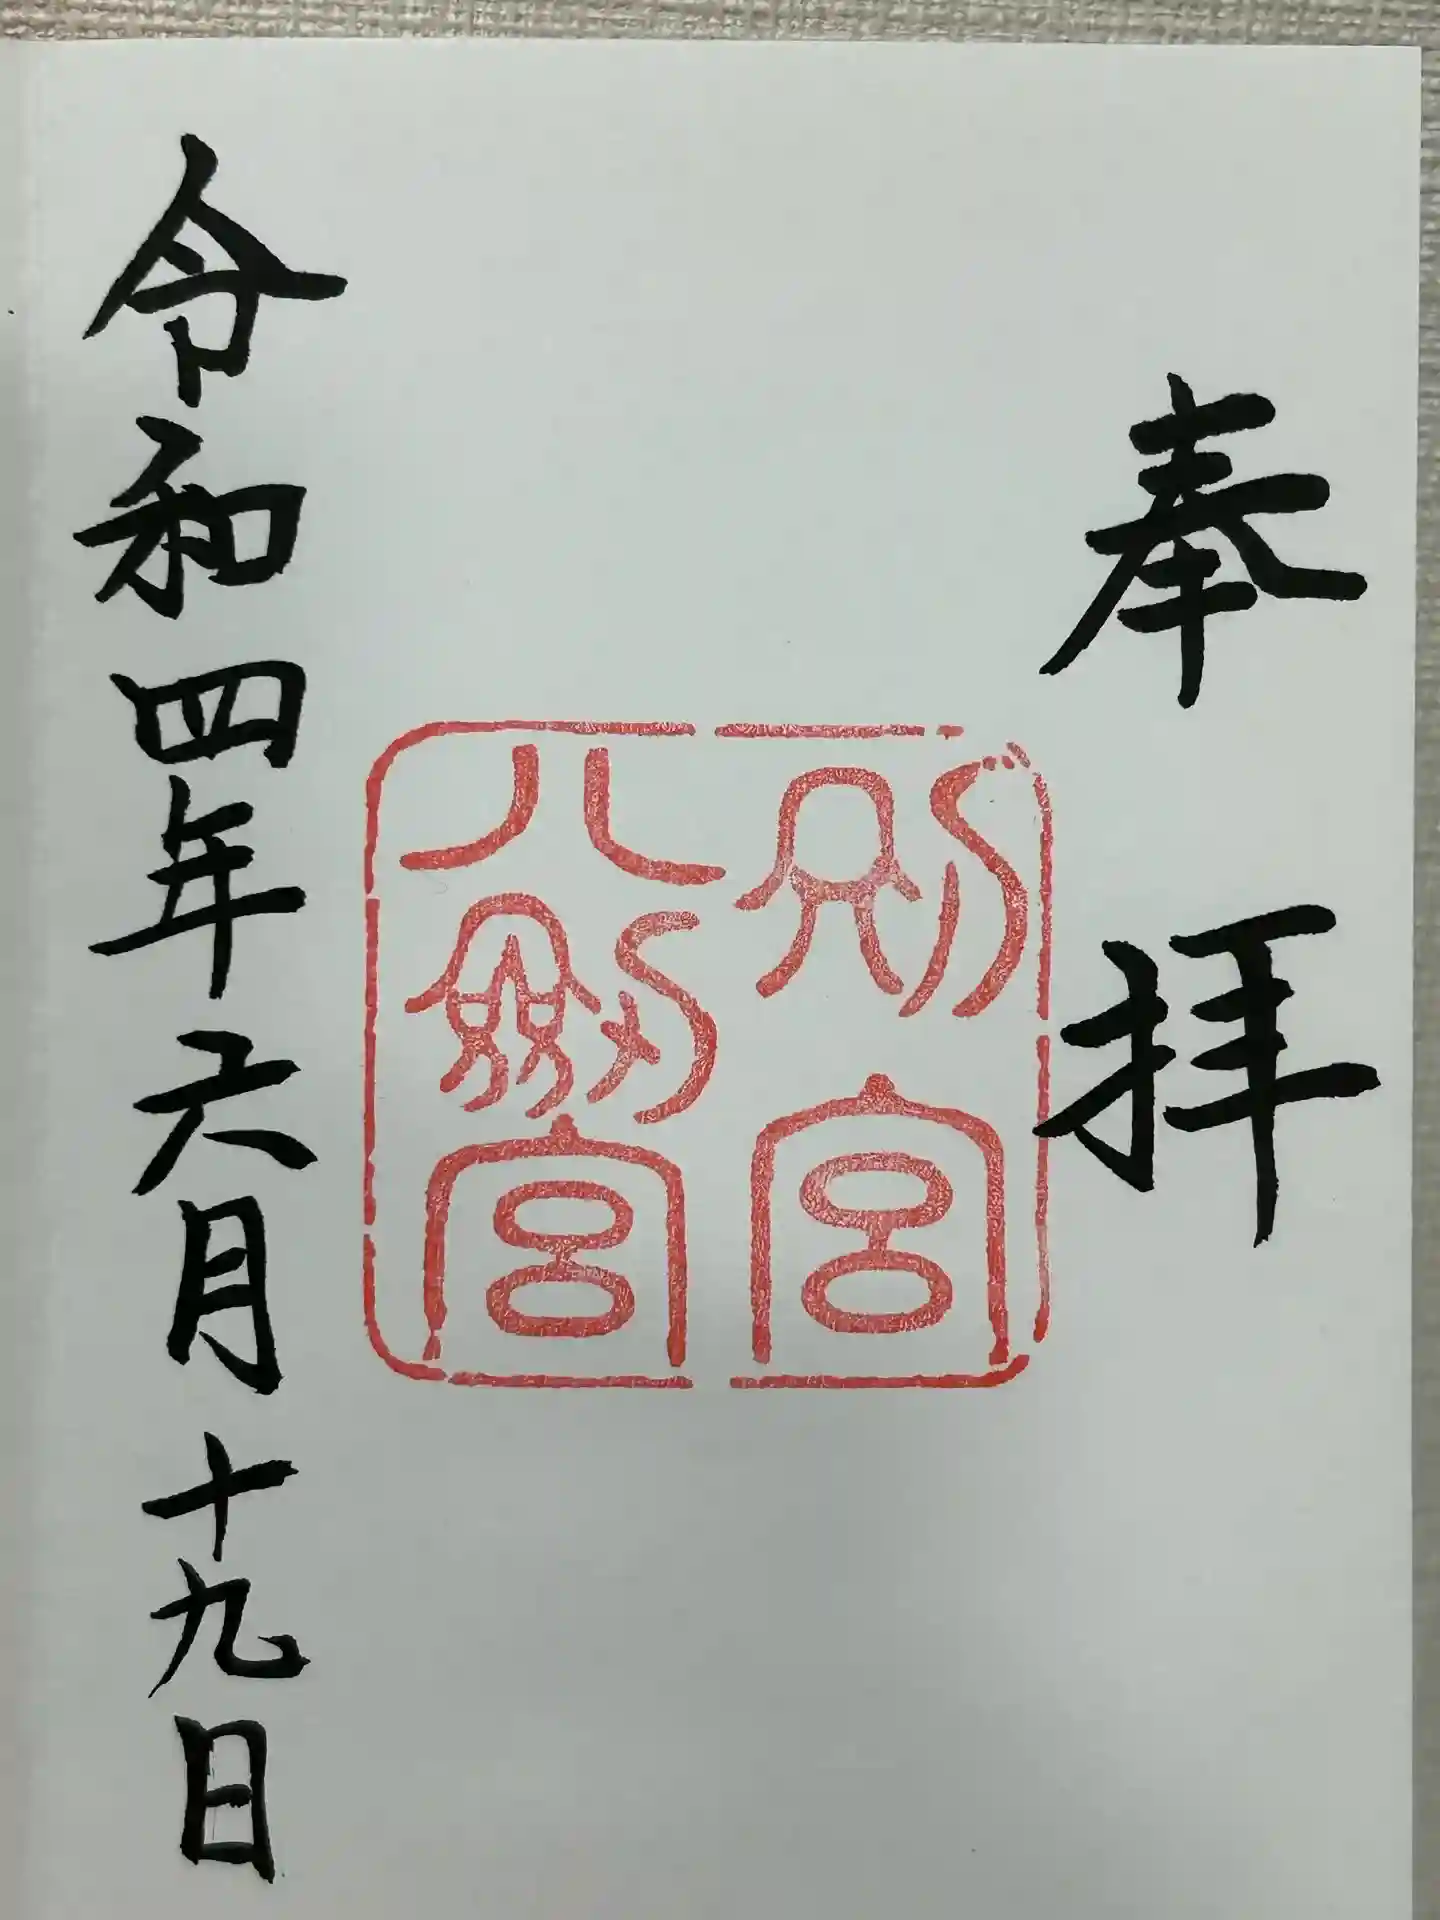 奉拝
別宮
八劔宮
令和四年六月十九日